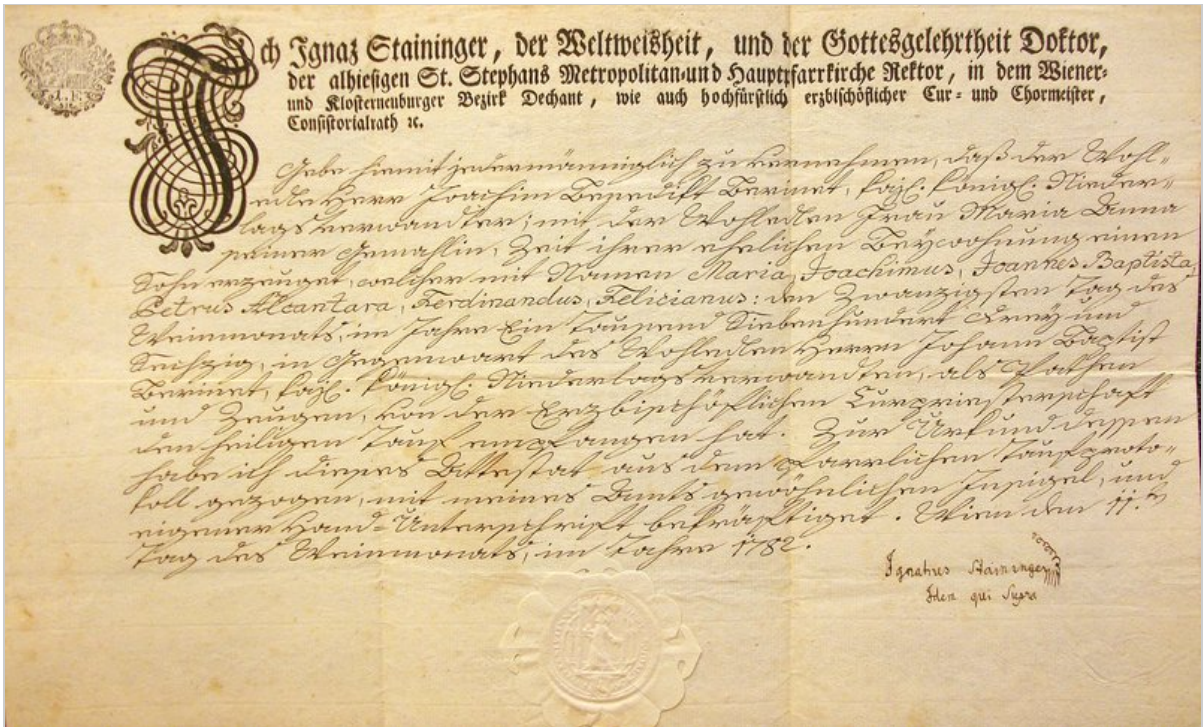 Ich Ignaz Staininger, der Weltweisheit, und der Gottesgelehrtheit Doktor,
der alhiesigen St. Stephans Metropolitan-und Hauptpfarrkirche Rektor, in dem Wiener-
und Klosterneuburger Bezirk Dechant, wie auch hochfürstlich erzbischöflicher Cur- und Chormeister,
Consistorialrath ꝛc.
Gebe hiemit jedermänniglich zu vernehmen, daß der Wohl-
edle Herr Joachim Benedikt Berinet, kajs. königs. Nieder-
lags verwandter; mit der Wohledlen Frau Maria Anna
seiner Gemahlin, Zeit ihrer ehelichen Beywohnung einen
Sohn erzeuget, welcher mit Namen Maria, Joachimus, Joannes Baptista,
Petrus Alcantara, Ferdinandus, Felicianus: den Zwanzigsten Tag des
Weinmonats, im Jahre Ein Tausend Siebenhundert Drey und
Sechzig, in Gegenwart des Wohledlen Herrn Johann Baptist
Berinet, kajs. königs. Niederlags verwandten, als Pathen
und Zeugen, von der Erzbischöflichen Curpriesterschaft
den heiligen Tauf empfangen hat. Zur Urkund dessen
habe ich dieses Attestat aus dem pfarrlichen Taufproto-
koll gezogen, mit meines Amts gewöhnlichen Insigel, und
eigener Hand-Unterschrift bekräftiget. Wien den 11.ten
Tag des Weinmonats, im Jahre 1782.
Ignatius Staininger
Idem qui Supra